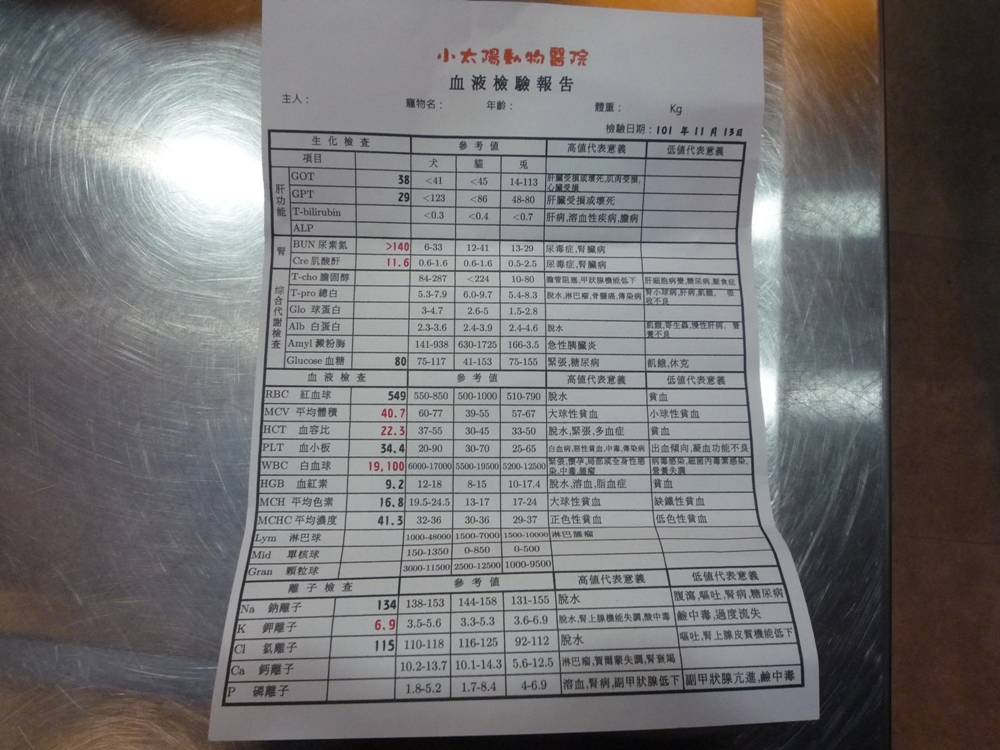 小太陽動物醫院
血液檢驗報告
主人： 寵物名： 年齡： 體重： Kg
檢驗日期：101 年 11 月 13日
生化檢查 參考值 高值代表意義 低值代表意義
項目 犬 貓 兎
肝功能
GOT 38 <41 <45 14-113 肝臟受損或壞死,肌肉受損,心臟受損
GPT 29 <123 <86 48-80 肝臟受損或壞死
T-bilirubin <0.3 <0.4 <0.7 肝病,溶血性疾病,膽病
ALP
腎
BUN 尿素氮 >140 6-33 12-41 13-29 尿毒症,腎臟病
Cre 肌酸酐 11.6 0.6-1.6 0.6-1.6 0.5-2.5 尿毒症,腎臟病
綜合代謝檢查
T-cho 膽固醇 84-287 <224 10-80 膽管阻塞,甲狀腺機能低下 肝細胞病變,糖尿病,厭食症
T-pro 總白 5.3-7.9 6.0-9.7 5.4-8.3 脫水,淋巴瘤,骨髓癌,傳染病 腎小球病,肝病,飢餓、吸收不良
Glo 球蛋白 3-4.7 2.6-5 1.5-2.8
Alb 白蛋白 2.3-3.6 2.4-3.9 2.4-4.6 脫水 飢餓,寄生蟲,慢性肝病、營養不良
Amyl 澱粉脢 141-938 630-1725 166-3.5 急性胰臟炎
Glucose 血糖 80 75-117 41-153 75-155 緊張,糖尿病 飢餓,休克
血液檢查 參考值 高值代表意義 低值代表意義
RBC 紅血球 549 550-850 500-1000 510-790 脫水 貧血
MCV 平均體積 40.7 60-77 39-55 57-67 大球性貧血 小球性貧血
HCT 血容比 22.3 37-55 30-45 33-50 脫水,緊張,多血症 貧血
PLT 血小板 34.4 20-90 30-70 25-65 白血病,惡性貧血,中毒,傳染病 出血傾向,凝血功能不良
WBC 白血球 19,100 6000-17000 5500-19500 5200-12500 緊張,懷孕,局部或全身性感染,中毒,腫瘤 病毒感染,細菌內毒素感染,營養失調
HGB 血紅素 9.2 12-18 8-15 10-17.4 脫水,溶血,脂血症 貧血
MCH 平均色素 16.8 19.5-24.5 13-17 17-24 大球性貧血 缺鐵性貧血
MCHC 平均濃度 41.3 32-36 30-36 29-37 正色性貧血 低色性貧血
Lym 淋巴球 1000-48000 1500-7000 1500-10000 淋巴腫瘤
Mid 單核球 150-1350 0-850 0-500
Gran 顆粒球 3000-11500 2500-12500 1000-9500
離子檢查 參考值 高值代表意義 低值代表意義
Na 鈉離子 134 138-153 144-158 131-155 脫水 腹瀉,嘔吐,腎病,糖尿病
K 鉀離子 6.9 3.5-5.6 3.3-5.3 3.6-6.9 脫水,腎上腺機能失調,酸中毒 鹼中毒,過度流失
Cl 氯離子 115 110-118 116-125 92-112 脫水 嘔吐,腎上腺皮質機能低下
Ca 鈣離子 10.2-13.7 10.1-14.3 5.6-12.5 淋巴瘤,賀爾蒙失調,腎衰竭
P 磷離子 1.8-5.2 1.7-8.4 4-6.9 溶血,腎病,副甲狀腺低下 副甲狀腺亢進,鹼中毒